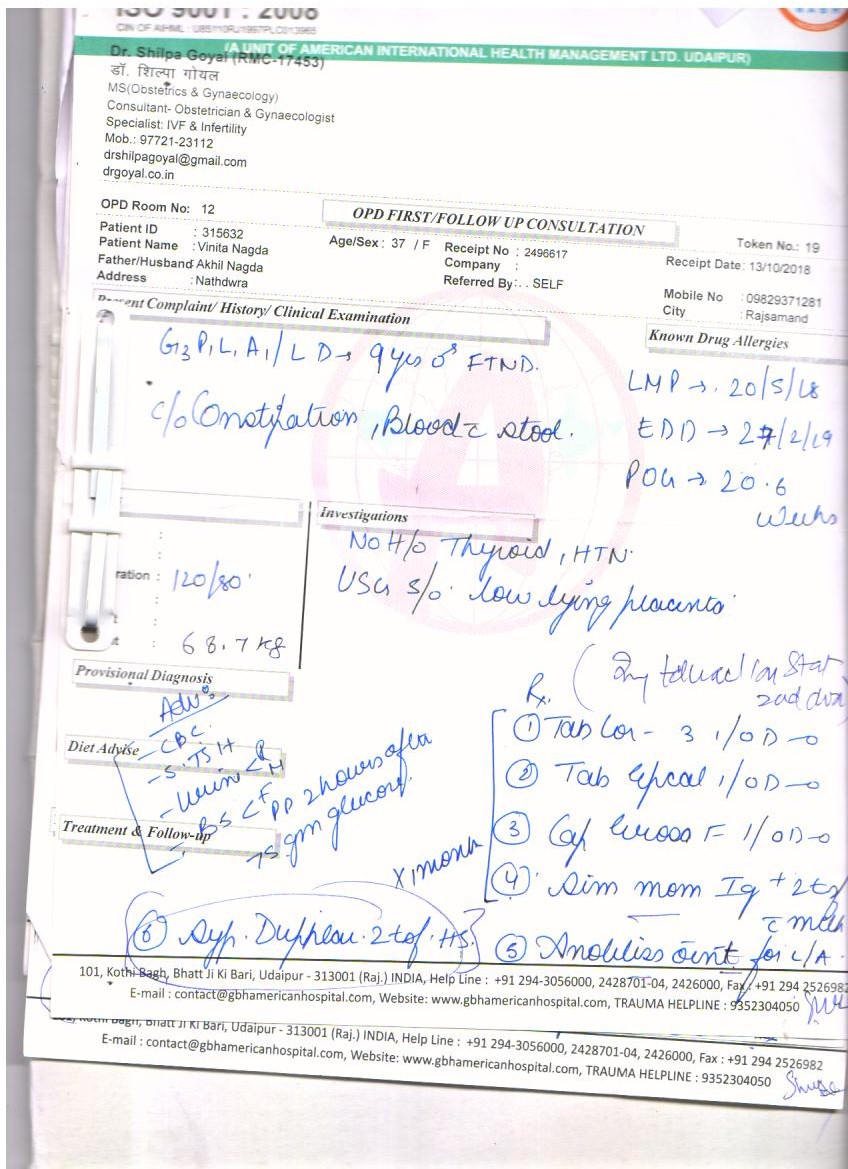 ISO 9001 : 2008
CIN OF AIHML : U85110RJ1997PLC013965
(A UNIT OF AMERICAN INTERNATIONAL HEALTH MANAGEMENT LTD. UDAIPUR)
Dr. Shilpa Goyal (RMC-17453)
डॉ. शिल्पा गोयल
MS(Obstetrics & Gynaecology)
Consultant- Obstetrician & Gynaecologist
Specialist: IVF & Infertility
Mob.: 97721-23112
drshilpagoyal@gmail.com
drgoyal.co.in
OPD Room No: 12
OPD FIRST/FOLLOW UP CONSULTATION
Token No.: 19
Patient ID : 315632
Patient Name : Vinita Nagda
Age/Sex : 37 / F
Receipt No : 2496617
Receipt Date: 13/10/2018
Father/Husband: Akhil Nagda
Company :
Address : Nathdwra
Referred By: . . SELF
Mobile No : 09829371281
City : Rajsamand
Present Complaint/ History/ Clinical Examination
Known Drug Allergies
G3 P1 L1 A1 / LD → 9 yrs FTND.
LMP → 20/5/18
c/o Constipation, Blood c stool.
EDD → 27/2/19
POG → 20.6
weeks
Investigations
No H/o Thyroid, HTN.
ration : 120/80
USG S/o low lying placenta
: 68.7 kg
Provisional Diagnosis
Adv:
- CBC
- S. TSH
- Urine < R M
- BS < F PP 2 hours after
75 gm glucose
Diet Advise
Treatment & Follow-up
Rx.
Stat
① Tab 3 1/OD
② Tab 1/OD
③ Cap F 1/OD
x 1 month
④ mom + 2
c milk
⑤ oint for L/A.
⑥ Syp. 2 HS.
101, Kothi Bagh, Bhatt Ji Ki Bari, Udaipur - 313001 (Raj.) INDIA, Help Line : +91 294-3056000, 2428701-04, 2426000, Fax : +91 294 2526982
E-mail : contact@gbhamericanhospital.com, Website: www.gbhamericanhospital.com, TRAUMA HELPLINE : 9352304050
Kothi Bagh, Bhatt Ji Ki Bari, Udaipur - 313001 (Raj.) INDIA, Help Line : +91 294-3056000, 2428701-04, 2426000, Fax : +91 294 2526982
E-mail : contact@gbhamericanhospital.com, Website: www.gbhamericanhospital.com, TRAUMA HELPLINE : 9352304050